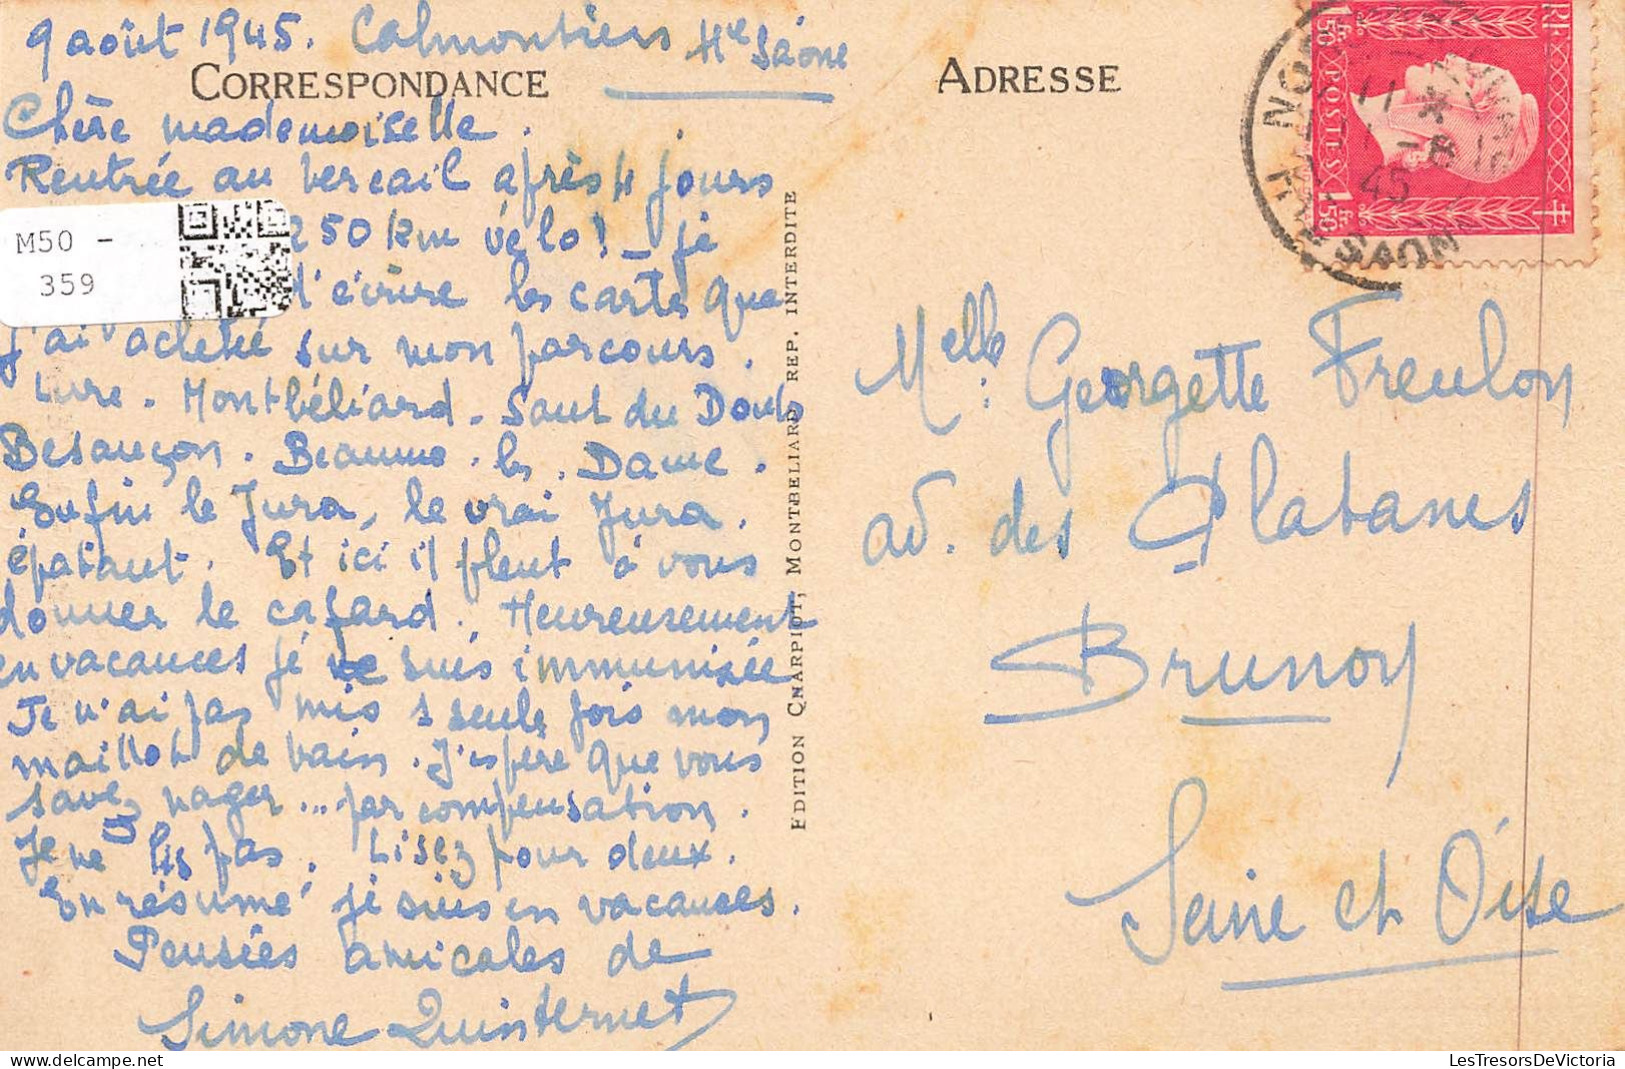 9 août 1945. Calmoutiers Hte Saône
CORRESPONDANCE
Chère mademoiselle.
Rentrée au bercail après 4 jours
250 km vélo! - je
d'écrire les cartes que
j'ai acheté sur mon parcours.
Lure. Montbéliard. Saut du Doubs
Besançon. Beaume. les. Dame.
Enfin le Jura, le vrai Jura,
épatant. Et ici il pleut à vous
donner le cafard. Heureusement
en vacances je suis immunisée
Je n'ai pas mis 1 seule fois mon
maillot de bain. J'espère que vous
savez nager... par compensation.
Je ne lis pas. Lisez pour deux.
En résumé je suis en vacances.
Pensées amicales de
Simone Quinternet
M50 -
359
EDITION CHARPIOT, MONTBELIARD REP. INTERDITE
ADRESSE
RF
1 fr 50 POSTES 1 fr 50
11 * -8
45
Hte SAONE
Melle: Georgette Freulon
av. des Platanes
Brunoy
Seine et Oise
LesTresorsDeVictoria